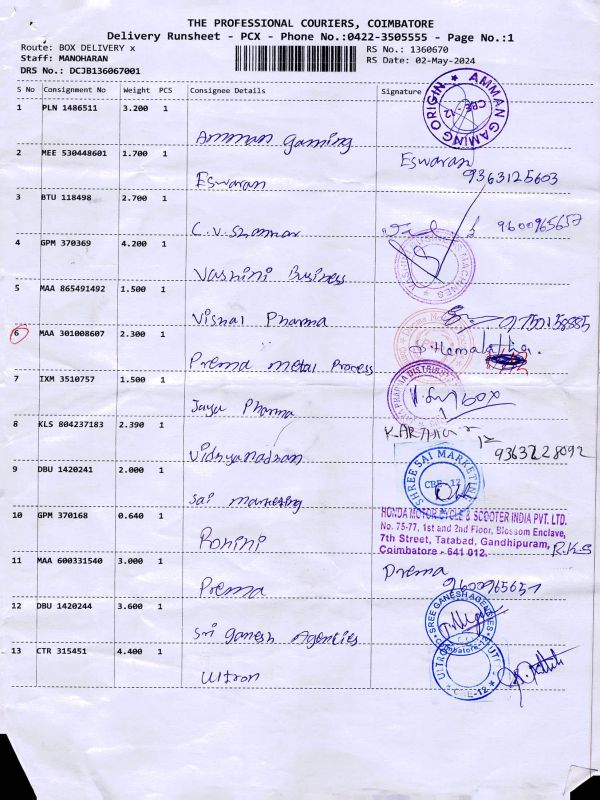 THE PROFESSIONAL COURIERS, COIMBATORE
Delivery Runsheet - PCX - Phone No.:0422-3505555 - Page No.:1
Route: BOX DELIVERY x RS No.: 1360670
Staff: MANOHARAN RS Date: 02-May-2024
DRS No.: DCJB136067001
S No Consignment No Weight PCS Consignee Details Signature
1 PLN 1486511 3.200 1 Amman Gaming
AMMAN GAMING ORIGIN CBE-12
2 MEE 530448601 1.700 1 Eswaran
Eswaran
9363125603
3 BTU 118498 2.700 1 C.V. 9600965657
4 GPM 370369 4.200 1 Vashini Business
5 MAA 865491492 1.500 1 Vishal Pharma
6 MAA 301008607 2.300 1 Prema metal Process
Hemalatha.
7 IXM 3510757 1.500 1 Jaya Pharma
8 KLS 804237183 2.390 1 Vidhyanadhan
9363228092
9 DBU 1420241 2.000 1 Sai marketing
SHREE SAI MARKETING CBE-12
10 GPM 370168 0.640 1 Rohini
HONDA MOTOR CYCLE & SCOOTER INDIA PVT. LTD.
No. 75-77, 1st and 2nd Floor, Blossom Enclave,
7th Street, Tatabad, Gandhipuram,
Coimbatore - 641 012.
R.K.S
11 MAA 600331540 3.000 1 Prema
Prema
9600965657
12 DBU 1420244 3.600 1 Sri Ganesh Agencies
SREE GANESH AGENCIES Coimbatore
13 CTR 315451 4.400 1 Ultron
CBE-12